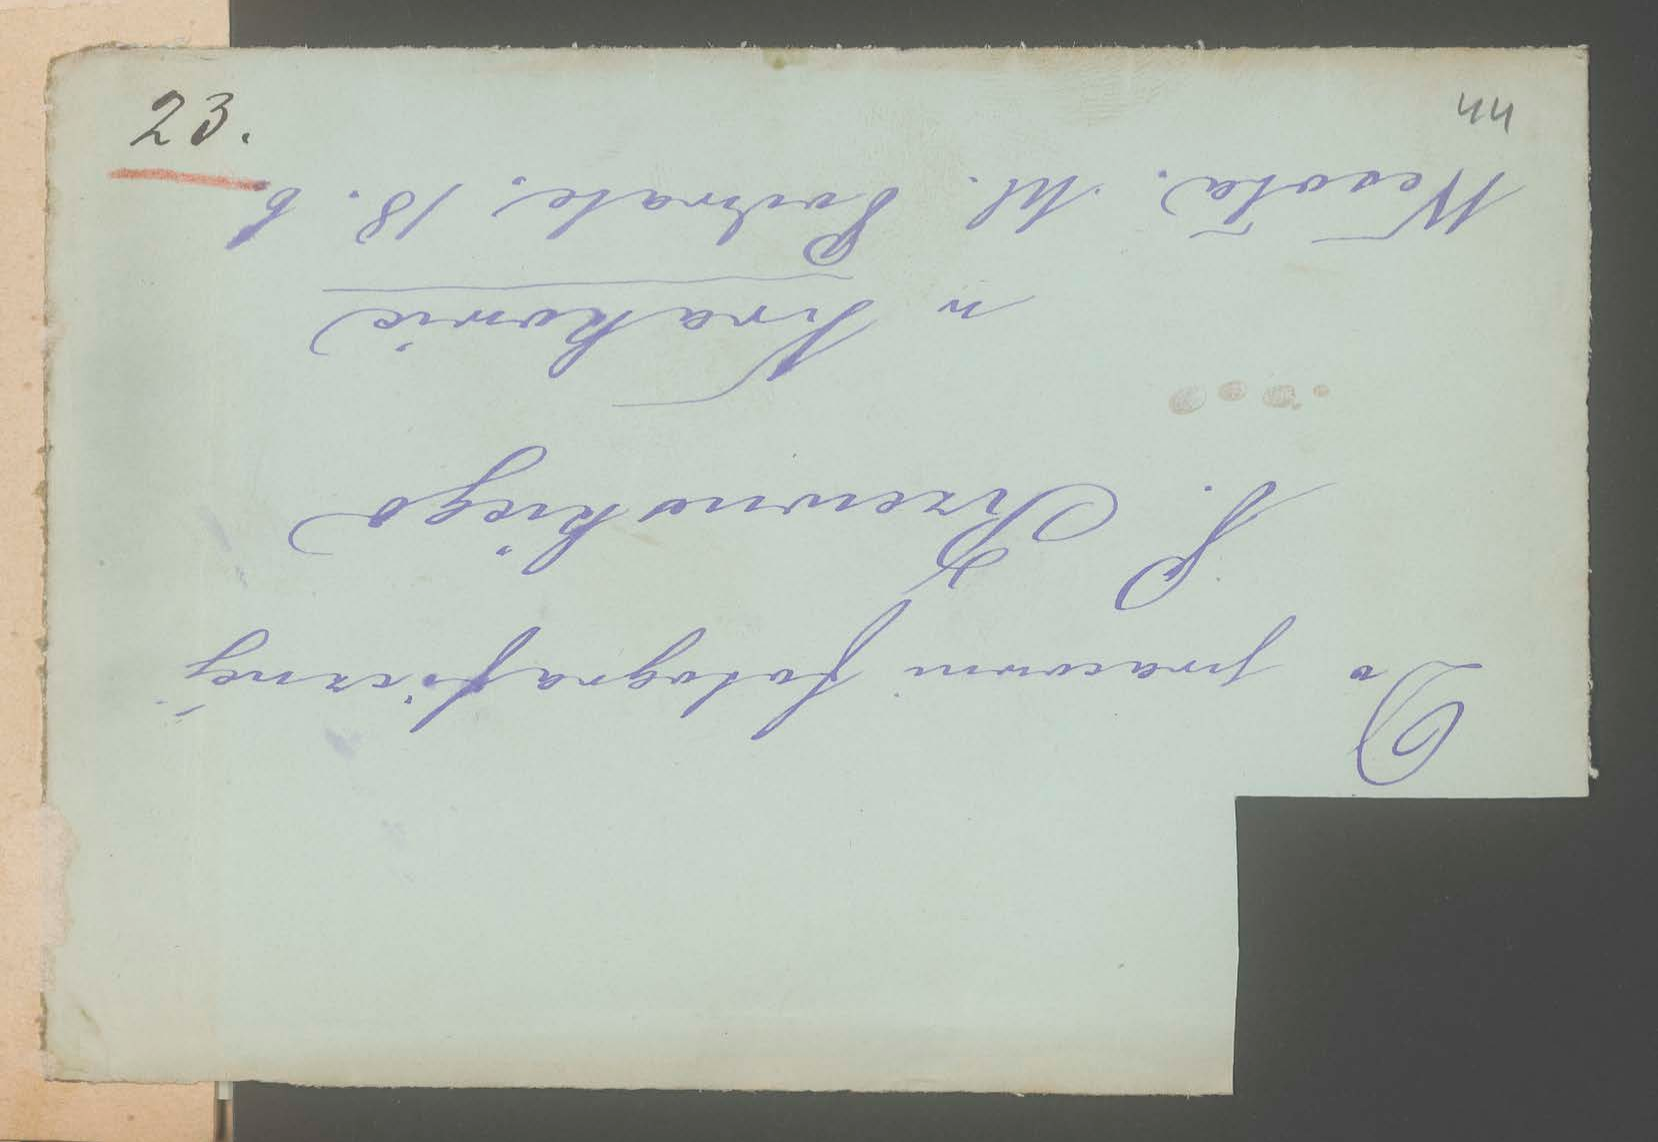 23.
44
Do pracowni fotograficznéj
J. Krzewińskiego
w Krakowie
Wesoła. Ul. 18. b